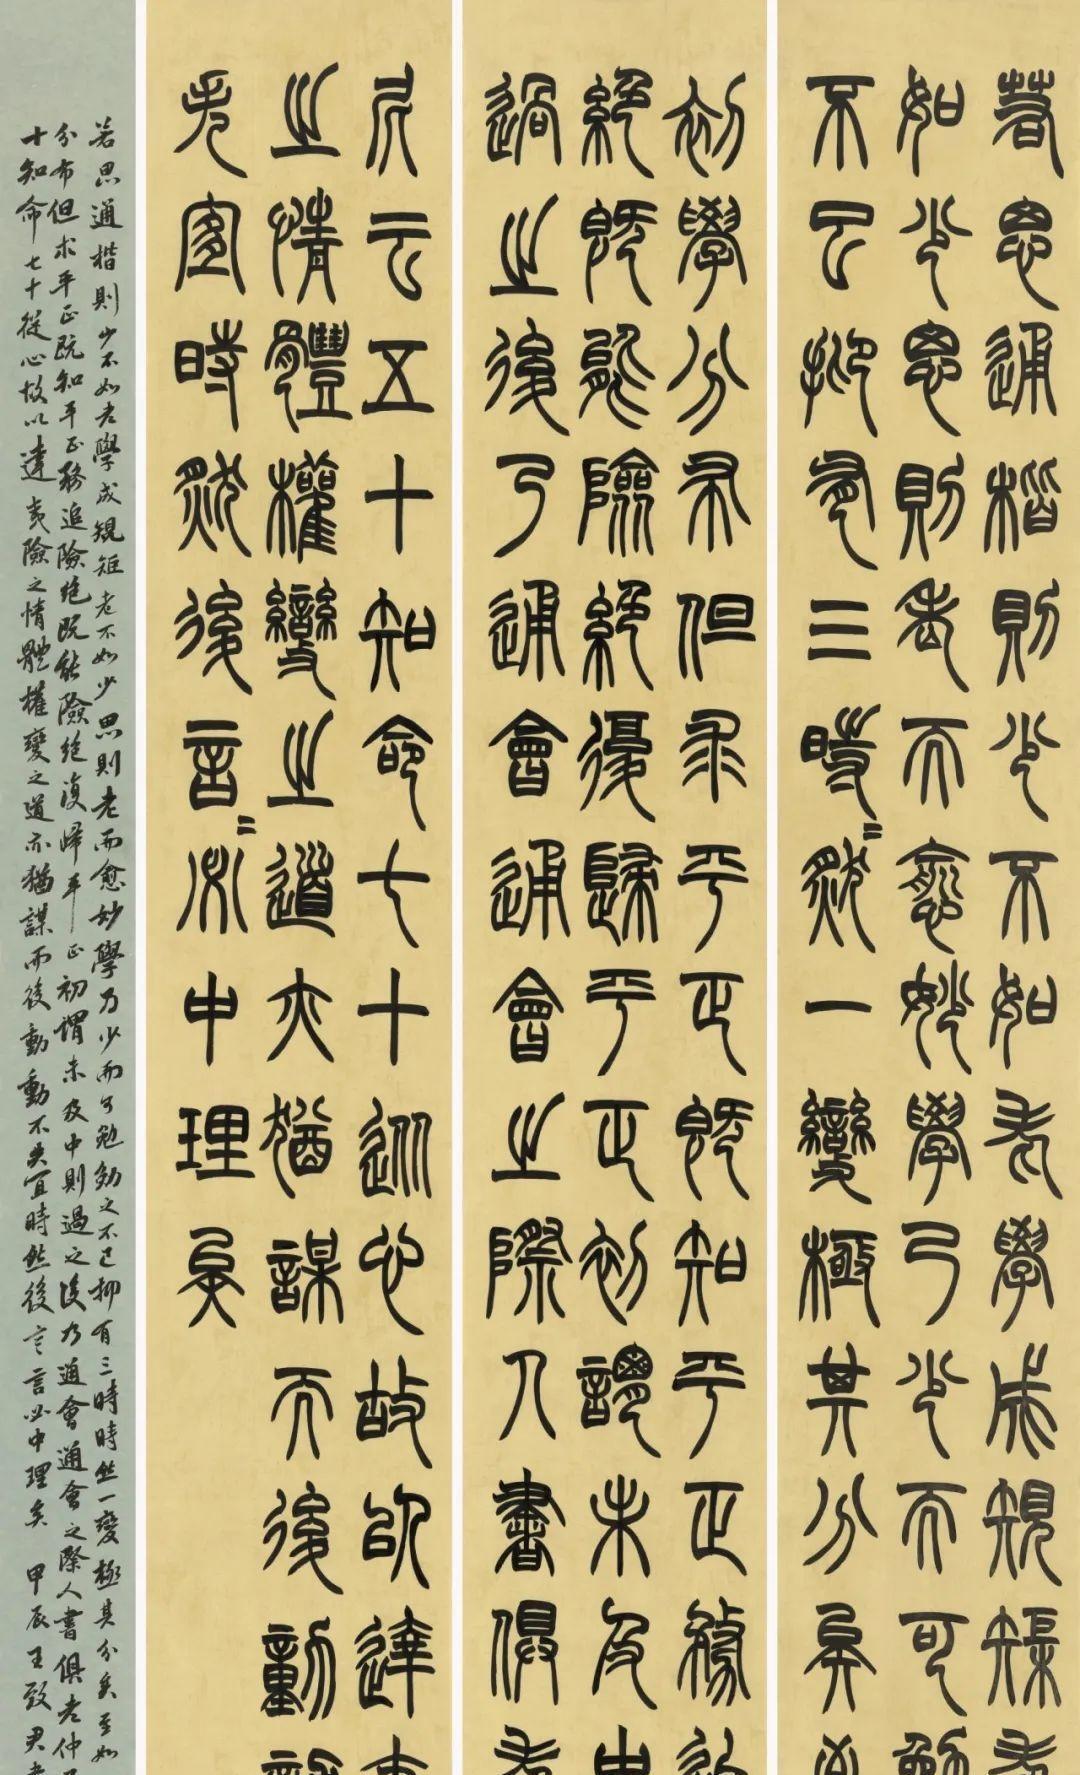 若思通楷則少不如老學成規矩老
如少思則老而愈妙學乃少而可勉
不已抑有三時〻然一變極其分矣至
初學分布但求平正既知平正務追
絕既能險絕復歸平正初謂未及中
過之後乃通會通會之際人書俱老
尼云五十知命七十從心故以達夷
之情體權變之道亦猶謀而後動
失宜時然後言〻必中理矣
若思通楷則少不如老學成規矩老不如少思則老而愈妙學乃少而可勉勉之不已抑有三時時然一變極其分矣至如
分布但求平正既知平正務追險絕既能險絕復歸平正初謂未及中則過之後乃通會通會之際人書俱老仲
十知命七十從心故以達夷險之情體權變之道亦猶謀而後動動不失宜時然後言言必中理矣 甲辰王致君書